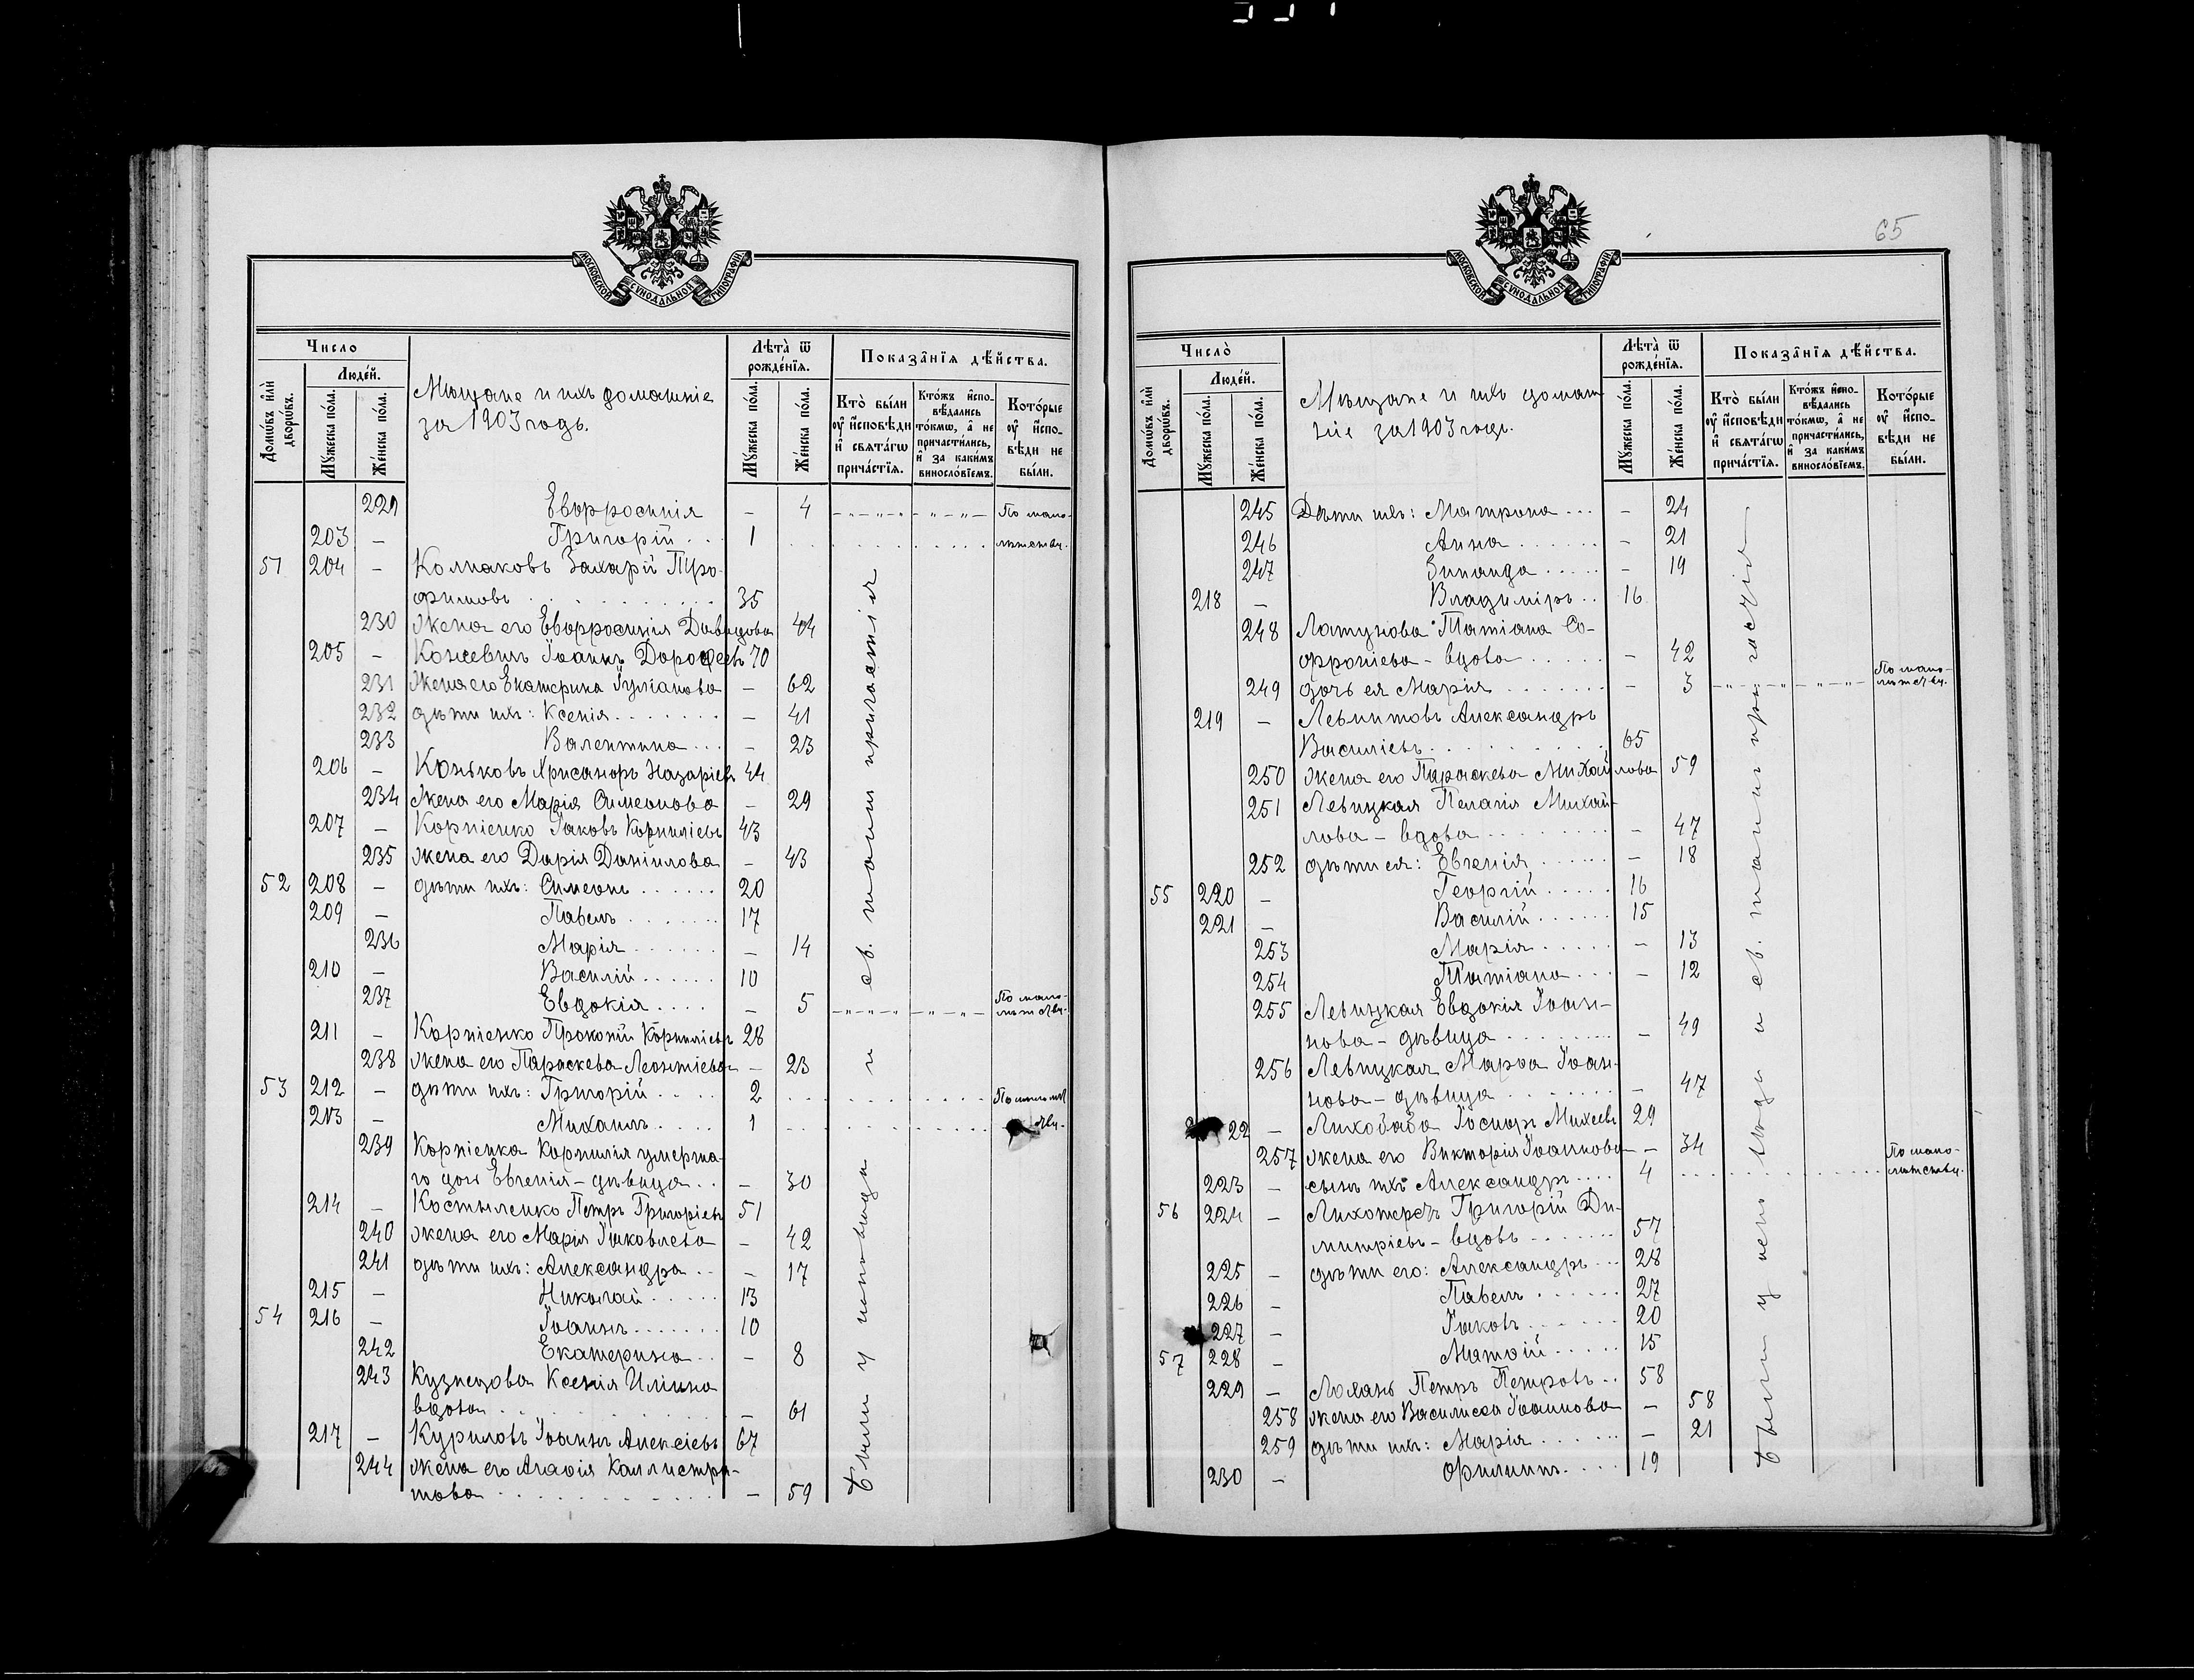 МОСКОВСКОЙ СѴНОДАЛЬНОЙ ТИПОГРАФІИ
Число
Домѡ́въ и҆лѝ дворѡ́въ.
Люде́й.
Мꙋ́жеска по́ла.
Же́нска по́ла.
Мѣщане и ихъ домашніе
за 1903 годъ.
Лѣта̀ ѿ рожде́нїѧ.
Мꙋ́жеска по́ла.
Же́нска по́ла.
Показа̑нїѧ дѣ́йства.
Кто̀ бы́ли ᲂу҆ и҆сповѣди и҆ свѧта́гѡ прича́стїѧ.
Кто́жъ и҆спо-вѣдались то́кмѡ, а҆ не причасти́лись, и҆ за каки́мъ винослóвїемъ.
Кото́рые ᲂу҆ и҆спо-вѣди не бы́ли.
229 Евфросинія - 4 По мало-
203 - Григорій . . 1 лѣтству.
51 204 - Колпаковъ Захарій Тро-
фимовъ 35
230 Жена его Евфросинія Давидова 44
205 - Кожевинъ Іоаннъ Дороѳеевъ 70
231 Жена его Екатерина Іуліанова - 62
232 дѣти ихъ: Ксенія - 41
233 Валентина - 23
206 - Коньковъ Хрисанфъ Назаріевъ 44
234 Жена его Марія Симеонова - 29
207 - Корніенко Іаковъ Корниліевъ 43
235 жена его Дарія Даніилова - 43
52 208 - дѣти ихъ: Симеонъ 20
209 - Павелъ 17
236 Марія - 14
210 - Василій 10
237 Евдокія - 5 По мало-лѣтству.
211 - Корніенко Прокопій Корниліевъ 28
238 жена его Параскева Леонтіева - 23
53 212 - дѣти ихъ: Григорій 2 По малолѣт
213 - Михаилъ 1 ству.
239 Корніенка Корнилія умерша-
го дочь Евгенія - дѣвица - 30
214 - Костыленко Петръ Григоріевъ 51
240 жена его Марія Іаковлева - 42
241 дѣти ихъ: Александра - 17
215 - Николай 13
54 216 - Іоаннъ 10
242 Екатерина - 8
243 Кузнецова Ксенія Иліина
вдова - 61
217 - Куриловъ Іоаннъ Алексіевъ 67
244 жена его Агаѳія Каллистра-
това - 59
Были у исповѣди и св. таинъ причастія
65
МОСКОВСКОЙ СѴНОДАЛЬНОЙ ТИПОГРАФІИ
Число̀
Домѡ́въ и҆лѝ дворѡ́въ.
Люде́й.
Мꙋ́жеска по́ла.
Же́нска по́ла.
Мѣщане и ихъ домаш-
ніе за 1903 годъ.
Лѣта̀ ѿ рожде́нїѧ.
Мꙋ́жеска по́ла.
Же́нска по́ла.
Показа̑нїѧ дѣ́йства.
Кто̀ бы́ли ᲂу҆ и҆сповѣди и҆ свѧта́гѡ прича́стїѧ.
Кто́жъ и҆спо-вѣдались то́кмѡ, а҆ не причасти́лись, и҆ за каки́мъ винослóвїемъ.
Кото́рые ᲂу҆ и҆спо-вѣди не бы́ли.
245 Дѣти ихъ: Матрона - 24
246 Анна - 21
247 Зинаида - 19
218 - Владиміръ 16
248 Латунова Татіана Со-
фроніева - вдова - 42
249 дочь ея Марія - 3 По мало-лѣтству.
219 - Левитовъ Александръ
Василіевъ 65
250 жена его Параскева Михайлова 59
251 Левицкая Пелагія Михай-
лова - вдова - 47
252 дѣти ея: Евгенія - 18
55 220 - Георгій 16
221 - Василій 15
253 Марія - 13
254 Татіана - 12
255 Левицкая Евдокія Іоан-
нова - дѣвица - 49
256 Левицкая Марѳа Іоан-
нова - дѣвица - 47
22 - Лихобаба Іосифъ Михеевъ 29
257 жена его Викторія Іоаннова - 34
223 - сынъ ихъ Александръ 4 По мало-лѣтству.
56 224 - Лихотеръ Григорій Ди-
митріевъ - вдовъ 57
225 - дѣти его: Александръ 28
226 - Павелъ 27
227 - Іаковъ 20
57 228 - Матѳій 15
229 - Лохань Петръ Петровъ 58
258 жена его Василисса Іоаннова - 58
259 дѣти ихъ: Марія - 21
230 - Филиппъ 19
Были у исповѣди и св. таинъ причастія